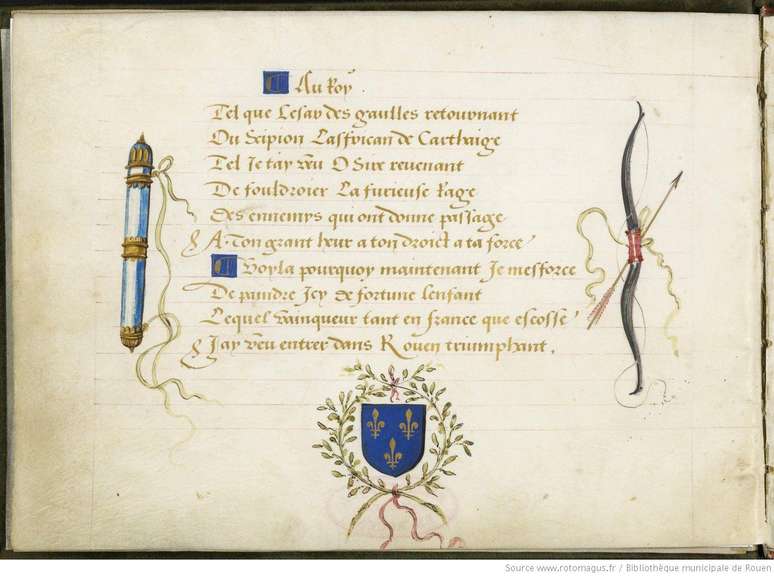 Au Roy
Tel que Cesar des gaulles retournant
Ou Scipion Laffrican de Carthaige
Tel Je tay veu O Sire revenant
De fouldroier La furieuse Rage
Des ennemys qui ont donne passage
A Ton grant heur a ton droict a ta force
Voyla pourquoy maintenant Je mesforce
De paindre Icy de fortune lenfant
Lequel vainqueur tant en france que escosse
Jay veu entrer dans Rouen triumphant.
Source www.rotomagus.fr / Bibliothèque municipale de Rouen